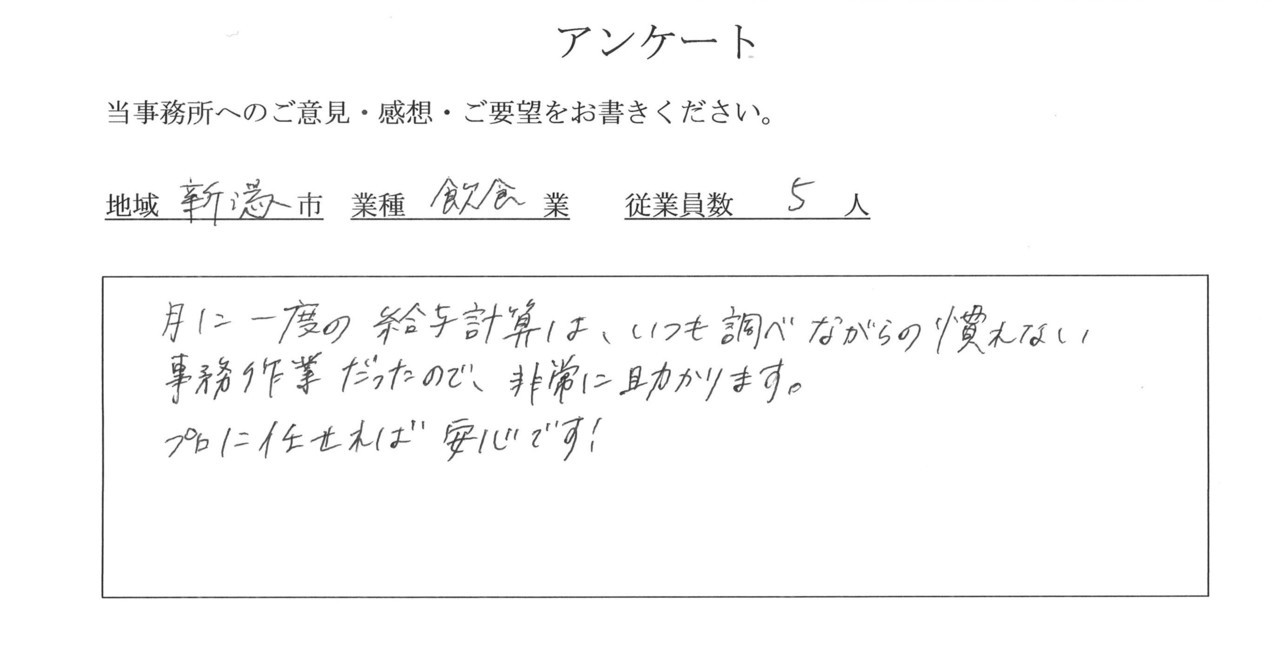 アンケート
当事務所へのご意見・感想・ご要望をお書きください。
地域 新潟 市 業種 飲食 業 従業員数 5 人
月に一度の給与計算は、いつも調べながらの慣れない
事務作業だったので、非常に助かります。
プロに任せれば安心です!